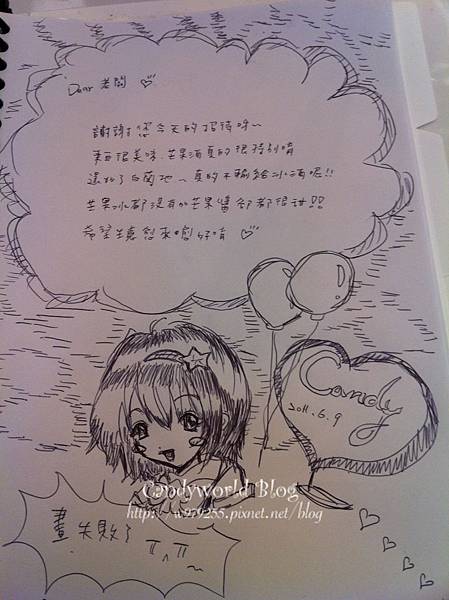 Dear 老闆
謝謝您今天的招待呀~
東西很美味、芒果酒真的很特別唷
還加了白蘭地~真的不輸給冰酒喔!!
芒果冰都沒有加芒果醬卻都很甜!!
希望生意愈來愈好唷
Candy
2011.6.9
Candyworld Blog
http://w979255.pixnet.net/blog
畫失敗了